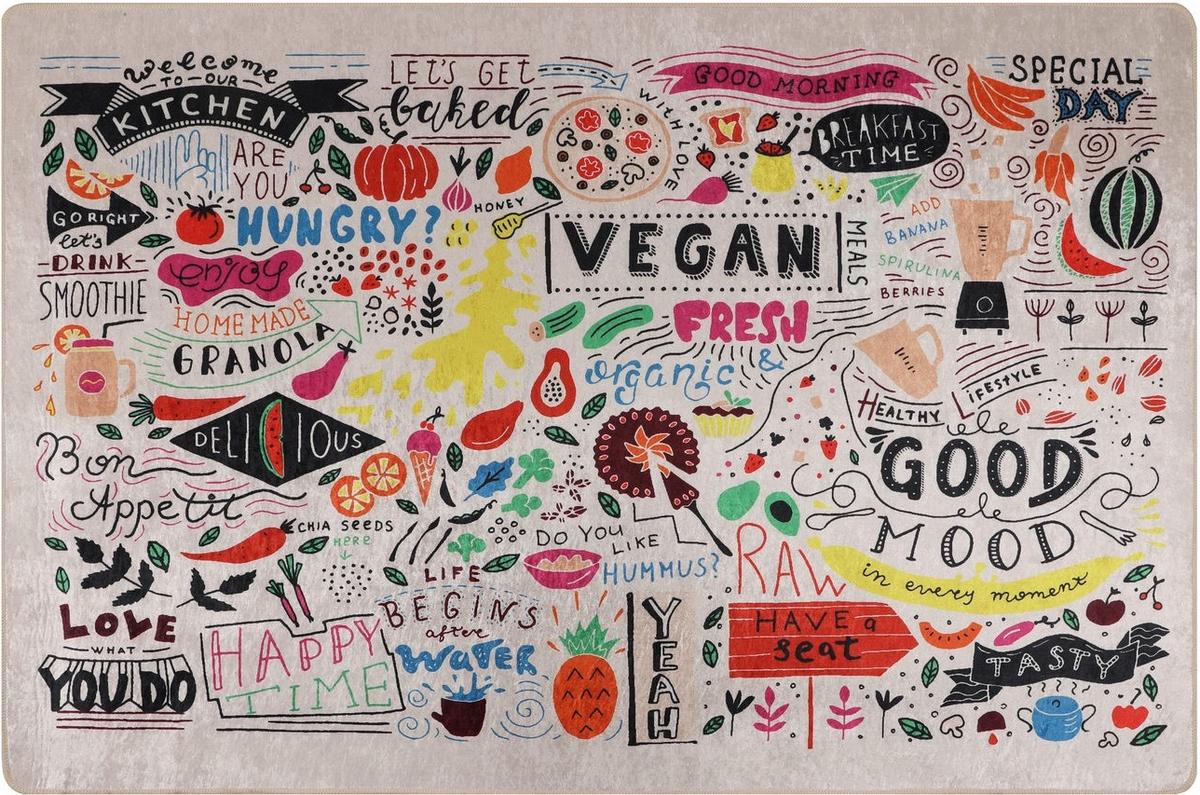 welcome
TO-OUR
KITCHEN
ARE
YOU
HUNGRY?
LET'S GET
baked
WITH LOVE
GOOD MORNING
BREAKFAST
TIME
SPECIAL
DAY
GO RIGHT
let's
-DRINK-
SMOOTHIE
enjoy
HOME MADE
GRANOLA
HONEY
VEGAN
MEALS
FRESH
organic &
ADD
BANANA
SPIRULINA
BERRIES
HEALTHY LIFESTYLE
GOOD
MOOD
in every moment
DELICIOUS
Bon
Appétit
CHIA SEEDS
HERE
DO YOU
LIKE
HUMMUS?
RAW
LIFE
BEGINS
after
WATER
LOVE
WHAT
YOU DO
HAPPY
TIME
YEAH
HAVE a
seat
TASTY